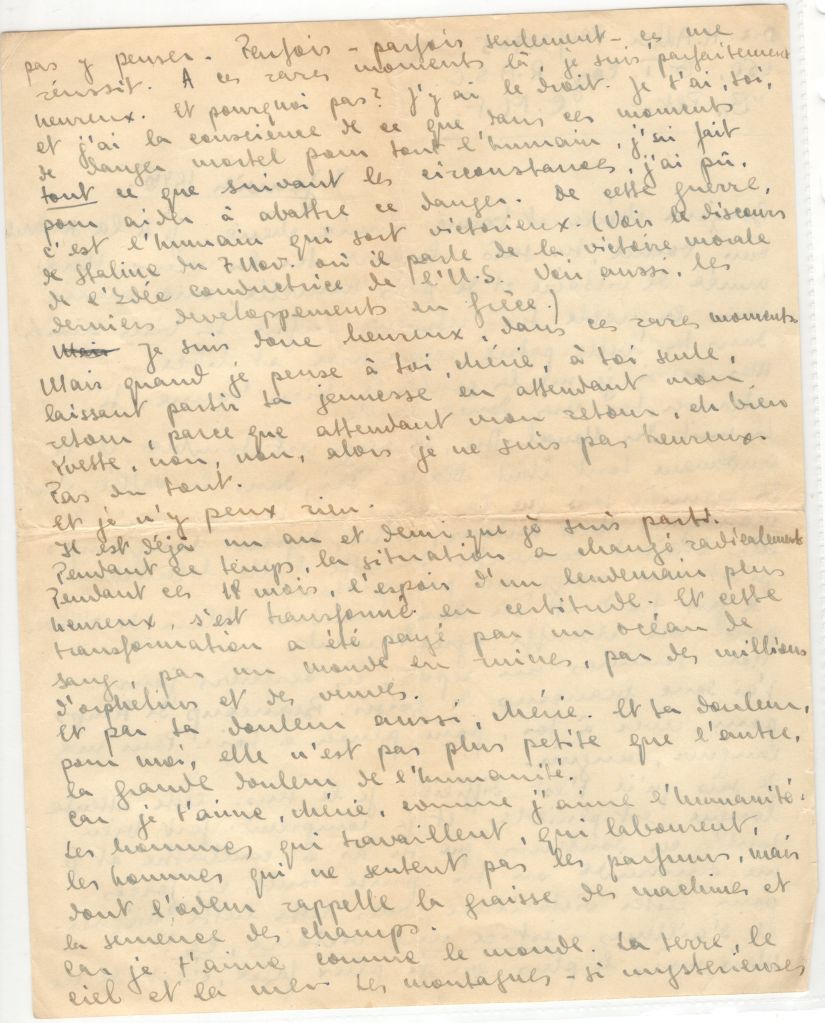 pas y penser. Parfois - parfois seulement - ça me
réussit. A ces rares moments là, je suis parfaitement
heureux. Et pourquoi pas? J'y ai le droit. Je t'ai, toi,
et j'ai la conscience de ce que dans ces moments
de danger mortel pour tout l'humain, j'ai fait
tout ce que suivant les circonstances, j'ai pû,
pour aider à abattre ce danger. De cette guerre,
c'est l'humain qui sort victorieux. (Voir le discours
de Staline du 7 Nov. où il parle de la victoire morale
de l'Idée conductrice de l'U.S. Voir aussi, les
derniers developpements en Grèce.)
Mais Je suis donc heureux, dans ces rares moments
Mais quand je pense à toi, chérie, à toi seule,
laissant partir ta jeunesse en attendant mon
retour, parce que attendant mon retour, eh bien
Yvette, non, non, alors je ne suis pas heureux.
Pas du tout.
Et je n'y peux rien.
Il est déjà un an et demi que je suis parti.
Pendant ce temps, la situation a changé radicalement
Pendant ces 18 mois, l'espoir d'un lendemain plus
heureux, s'est transformé en certitude. Et cette
transformation a été payé par un océan de
sang, par un monde en ruines, par des millions
d'orphélins et des veuves.
Et par ta douleur aussi, chérie. Et ta douleur,
pour moi, elle n'est pas plus petite que l'autre,
la grande douleur de l'humanité.
Car je t'aime, chérie, comme j'aime l'humanité.
Les hommes qui travaillent, qui labourent,
les hommes qui ne sentent pas les parfums, mais
dont l'odeur rappelle la graisse des machines et
la semence des champs.
Car je t'aime comme le monde. La terre, le
ciel et la mer. Les montagnes - si mystérieuses